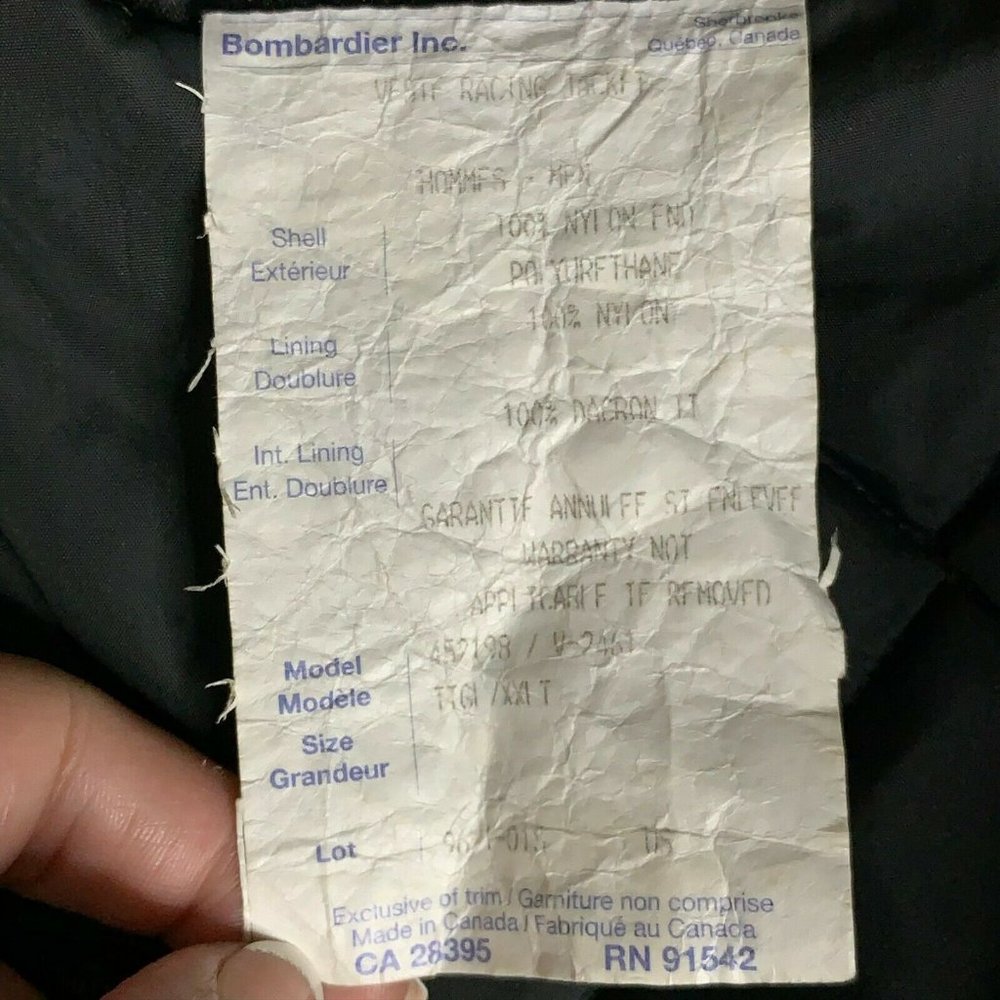 Bombardier Inc.
Sherbrooke
Québec, Canada
VESTE RACING JACKET
HOMMES - MEN
Shell
Extérieur
100% NYLON END
POLYURETHANE
100% NYLON
Lining
Doublure
100% DACRON II
Int. Lining
Ent. Doublure
GARANTIE ANNULEE SI ENLEVEE
WARRANTY NOT
APPLICABLE IF REMOVED
Model
Modèle
452198 / W-2461
Size
Grandeur
/XXLT
Lot
US
Exclusive of trim / Garniture non comprise
Made in Canada / Fabriqué au Canada
CA 28395 RN 91542